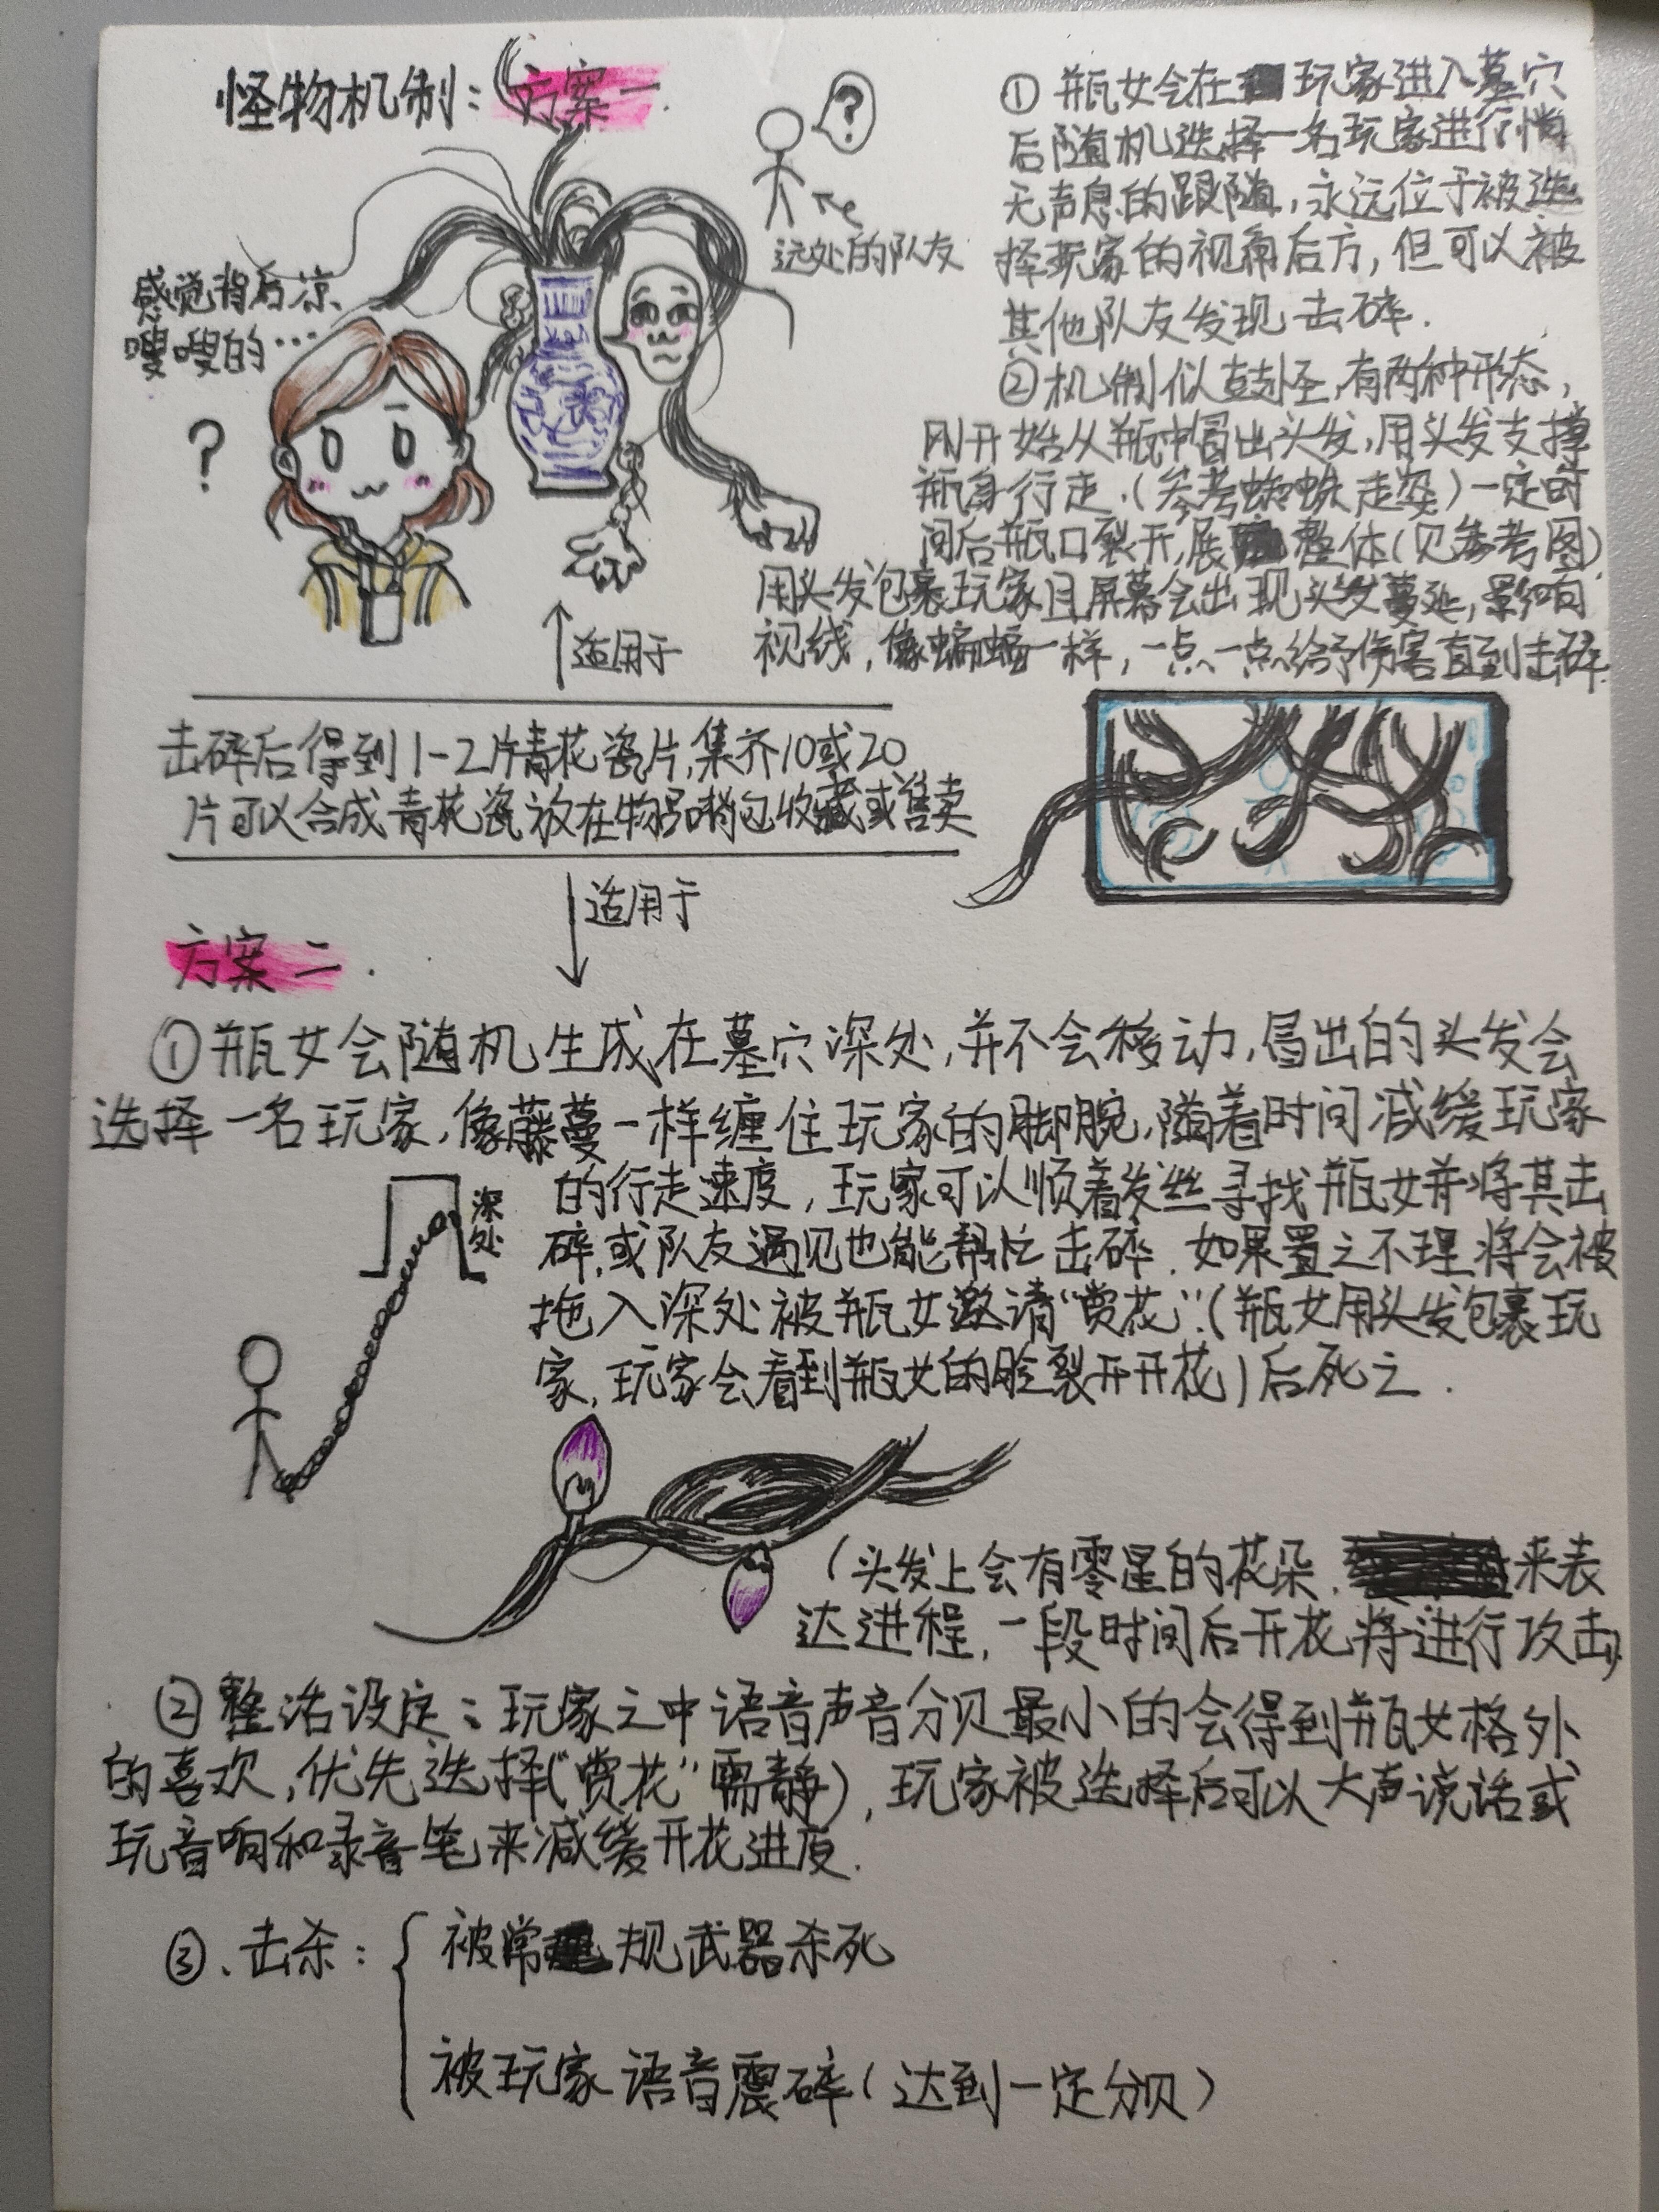 怪物机制：方案一
?
远处的队友
感觉背后凉
嗖嗖的…
?
① 瓶女会在玩家进入墓穴
后随机选择一名玩家进行悄
无声息的跟随，永远位于被选
择玩家的视角后方，但可以被
其他队友发现击碎．
②机制似鼓怪，有两种形态，
刚开始从瓶中冒出头发，用头发支撑
瓶身行走．（参考蜘蛛走姿）一定时
间后瓶口裂开，展整体（见参考图）
用头发包裹玩家且屏幕会出现头发蔓延，影响
视线，像蝙蝠一样，一点一点给予伤害直到击碎．
适用于
击碎后得到1-2片青花瓷片，集齐10或20
片可以合成青花瓷放在物品背包收藏或售卖
适用于
方案二．
①瓶女会随机生成在墓穴深处，并不会移动，冒出的头发会
选择一名玩家，像藤蔓一样缠住玩家的脚腕，随着时间减缓玩家
的行走速度，玩家可以顺着发丝寻找瓶女并将其击
碎，或队友遇见也能帮忙击碎．如果置之不理将会被
拖入深处被瓶女邀请“赏花”．（瓶女用头发包裹玩
家，玩家会看到瓶女的脸裂开开花）后死亡．
深处
（头发上会有零星的花朵．来表
达进程，一段时间后开花将进行攻击）
②整活设定：玩家之中语音声音分贝最小的会得到瓶女格外
的喜欢，优先选择（“赏花”需静），玩家被选择后可以大声说话或
玩音响和录音笔来减缓开花进度．
③、击杀：被常规武器杀死
被玩家语音震碎（达到一定分贝）